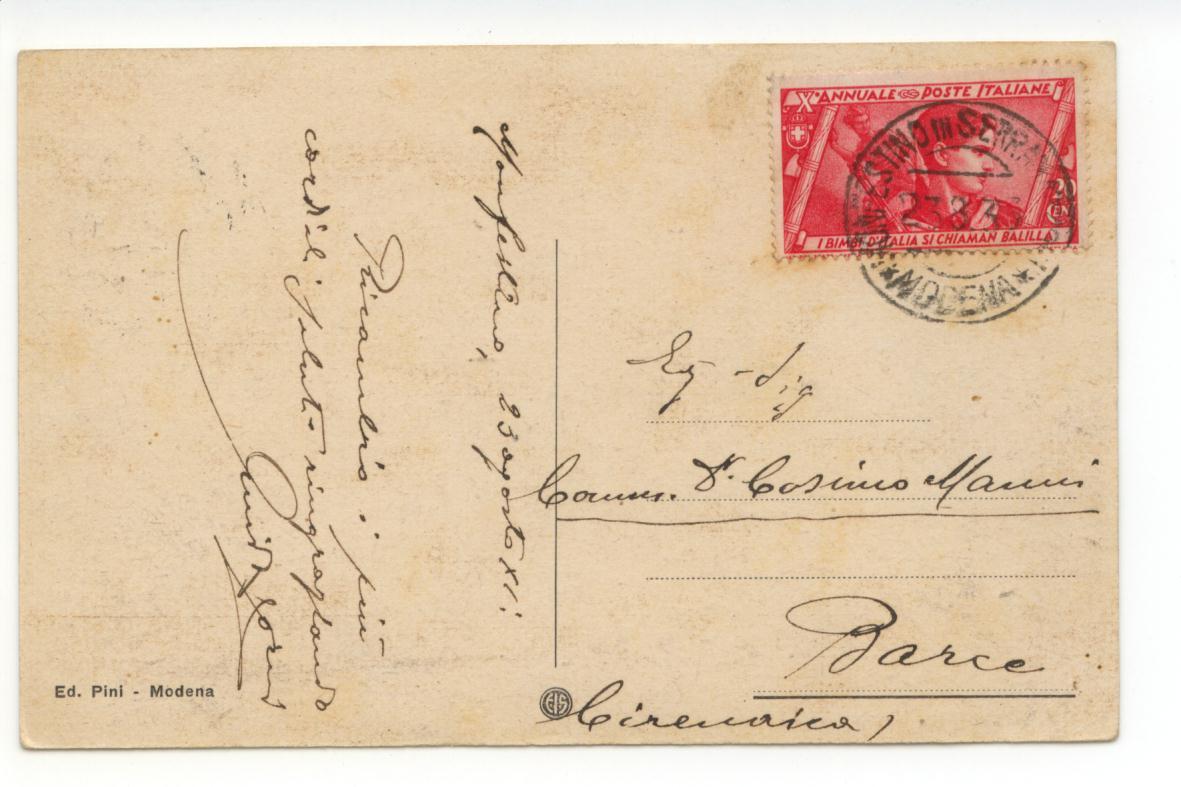 X° ANNUALE POSTE ITALIANE
20
CEN
I BIMBI D'ITALIA SI CHIAMAN BALILLA
MONFESTINO IN SERRA
23.8.33
* MODENA *
Monfestino, 23 agosto XI.
Ricambio i più
cordiali saluti ringraziando
Eg. Sig
Comm. Dr. Cosimo Manni
Barce
Cirenaica
Ed. Pini - Modena